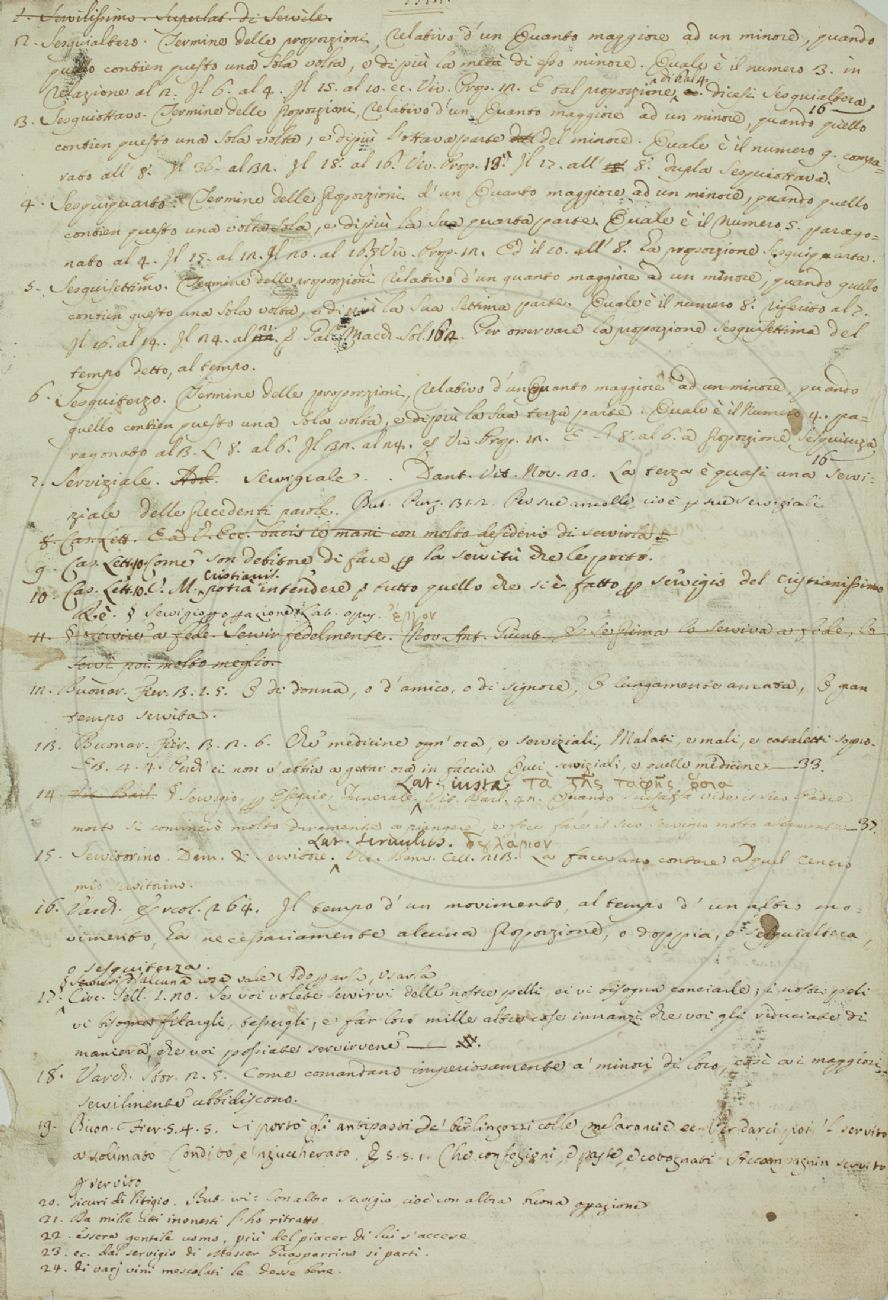 1. Servilissimo. Superlat. di Servile.
2. Sesquialtero. Termine delle proporzioni, relativo d'un Quanto maggiore ad un minore, quando
quello contien questo una sola volta, e di più la metà di esso minore. Quale è il numero 3. in
relazione al 2. Il 6. al 4. Il 15. al 10. ec. Viv. Prop. 12. E tal proporzione di 6 al 4. dicesi Sesquialtera
3. Sesquiottavo. Termine delle proporzioni, relativo d'un Quanto maggiore ad un minore, quando quello 16
contien questo una sola volta, e di più l'ottava parte del minore. Quale è il numero 9. compa-
rato all' 8. Il 36. al 32. Il 18. al 16. Viv. Prop. Il 17. all' 8. dupla Sesquiottava.
4. Sesquiquarto. Termine delle proporzioni d'un Quanto maggiore ad un minore, quando quello
contien questo una volta sola, e di più la sua quarta parte. Quale è il Numero 5. parago-
nato al 4. Il 15. al 12. Il 20. al 16. Viv. Prop. 12. Ed il 10. all' 8. ha proporzione Sesquiquarta.
5. Sesquisettimo. Termine delle proporzioni relativo d'un quanto maggiore ad un minore, quando quello
contien questo una sola volta, e di più la sua settima parte. Quale è il numero 8. riferito al 7.
Il 16. al 14. Il 24. al 21. Sol. 164. Per osservare la proporzione sesquisettima del
tempo detto, al tempo.
6. Sesquiterzo. Termine delle proporzioni, relativo d'un Quanto maggiore ad un minore, quando
quello contien questo una sola volta, e di più la sua terza parte. Quale è il Numero 4. pa-
ragonato al 3. L' 8. al 6. Il 32. al 24. Viv. Prop. 12. E l' 8. al 6. à proporzione Sesquiterza
7. Serviziale. Add. Servigiale. Dant. Vit. Nov. 20. La terza è quasi una servi- 16
ziale delle precedenti parole. But. Purg. 31. 2. Per sue ancelle, cioè p sue serviziali
8. Car. Lett. E à V. Ecc. bacio le mani con molto desiderio di servirla
9. Cas. Lett. 10. Come son debitore di fare p la servitù che le porto.
10. Cas. Lett. 10. V. M. Cristianis. potrà intendere p tutto quello che si è fatto p servigio del Cristianissimo
Rè. § Servigio p azione Lat. opus. ἔργον
11. § Servire a fede. Servir fedelmente. Nov. Ant. E se prima lo serviva a fede, lo
servì poi molto meglio.
12. Buonar. Fier. 3. 2. 5. E di donna, o d'amico, o di signore, E lungamente amata, E gran
tempo servita.
13. Buonar. Fier. 3. 2. 6. Che medicine ogn'ora, e serviziali, Malati, e mali, e cataletti sopra.
E 3. 4. 4. ci non v'abbia a gettar ora in faccia Quei serviziali, e quelle medicine 33.
14. § Servigio, p Esequie, Funerale, Lat. iusta τὰ τῆς ταφῆς ὅσια Vit. Barl. 42. Quando vide il suo Padre
morto si cominciò molto duramente a piangere, e fece fare il suo servigio molto 37
15. Servitorino. Dim. di Servitore. Lat. servulus. δουλάριον Vit. Benv. Cell. 213. La facevano contare a quel cencio
mio servitorino.
16. Varch. Ercol. 264. Il tempo d' un movimento, al tempo d' un altro mo-
vimento, ha necessariamente alcuna proporzione, o doppia, o sesquialtera,
o sesquiterza.
§ Servirsi d'alcuna cosa vale Adoprarla, Usarla
17. Circ. Gell. 1. 20. Se voi volete servirvi delle nostre pelli, ei vi bisogna conciarle; i nostri peli
vi bisogna filargli, tessergli, e far loro mille altre cose innanzi che voi gli riduciate di
maniera che voi possiate servirvene
18. Varch. Stor. 2. 5. Come comandano imperiosamente a' minori di loro, così a i maggiori
servilmente ubbidiscono.
19. Buon. Fier. 5. 4. 5. Ci portò gli antipasti de' berlingozzi colle melarancie ec. Per darci poi 'l servito
a solimato Condito, e 'nzuccherato. E 5. 5. 1. Che confezioni, e paste, e cotognati Accompagnin servito
p servito
20. sicuri di litigio. But. ivi: Con altro servigio, cioè con altra buona operazione
21. Da mille atti inonesti l' ho ritratto
22. essere gentile uomo, più del piacer di lui s'accese
23. ec. dal servigio di Messer Guasparrino si partì.
24. di varj vini mescolati le desse bere.